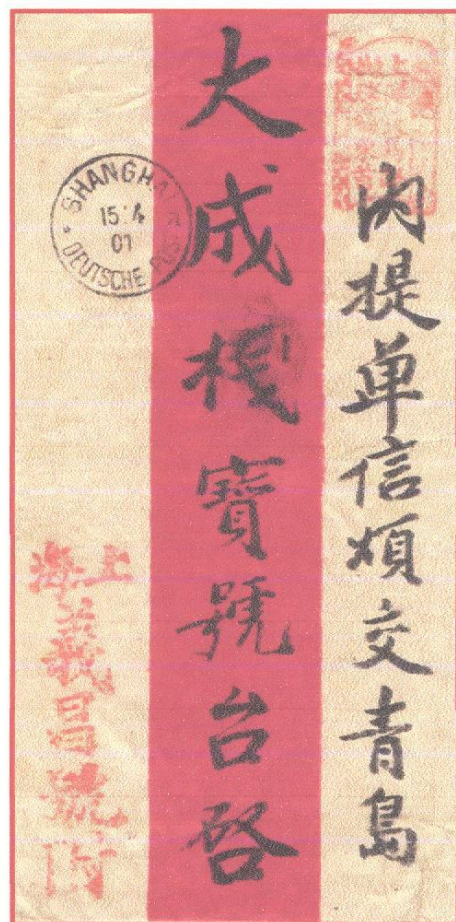 内提单信煩交青島
大成棧寶號台啓
SHANGHAI
15 4
01
DEUTSCHE POST
上海
義昌號